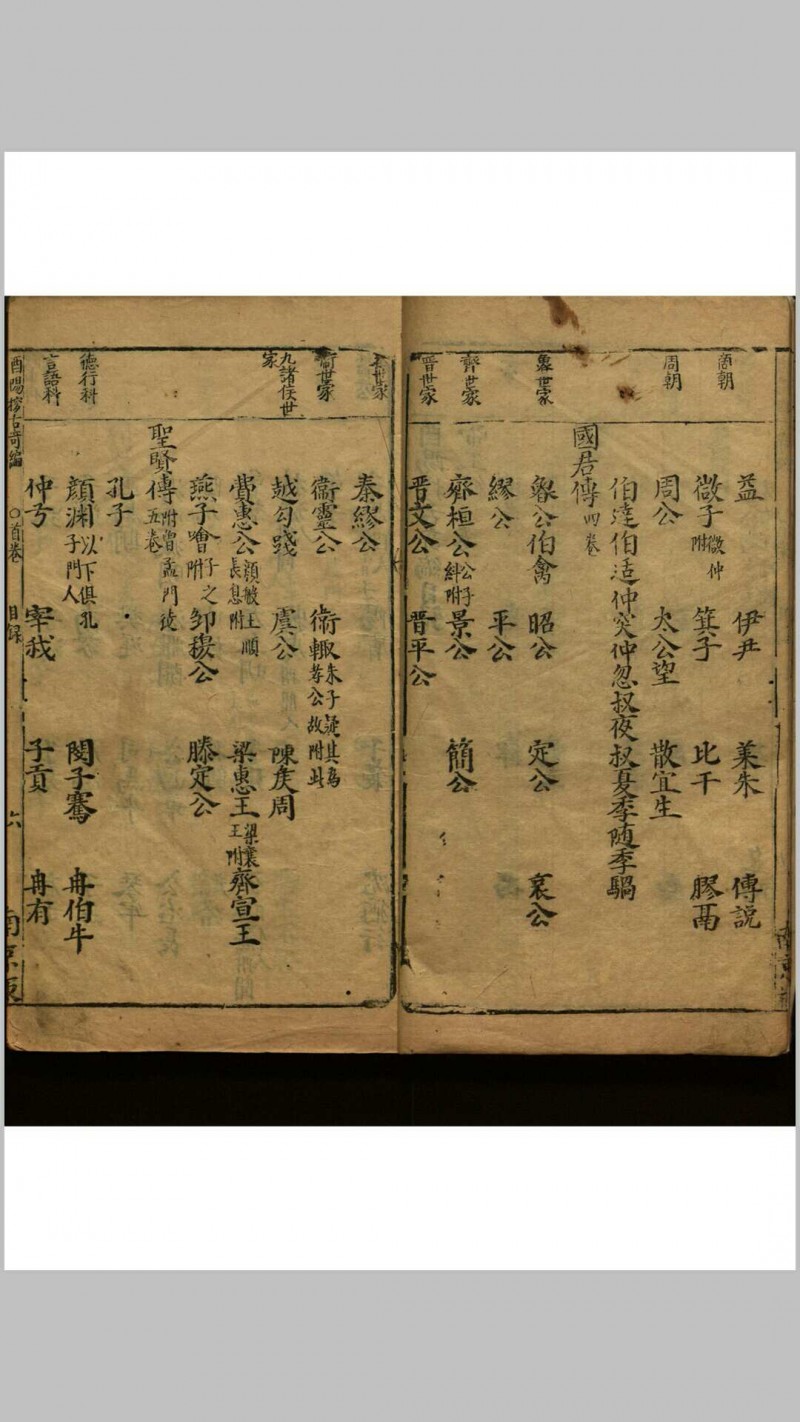 商朝
益 伊尹 萊朱 傅說
微子 微仲附 箕子 比干 膠鬲
周朝
周公 太公望 散宜生
伯達伯适仲突仲忽叔夜叔夏季随季騧
國君傳 四卷
魯世家
魯公伯禽 昭公 定公 哀公
繆公 平公
齊世家
齊桓公 公子糾附 景公 簡公
晋世家
晋文公 晋平公
世家
秦繆公
衞世家
衞靈公 衞輙 朱子疑其爲孝公故附此
九諸侯世家
越勾踐 虞公 陳侯周
費惠公 顔般王順長息附 梁惠王 梁襄王附 齊宣王
燕子噲 子之附 邹穆公 滕定公
聖賢傳 五卷 附曾孟門徒
孔子
德行科
顔淵 以下俱孔子門人 閔子騫 冉伯牛
言語科
仲弓 宰我 子貢 冉有
酉陽搜古奇編 〇首卷 目録 六 南京板